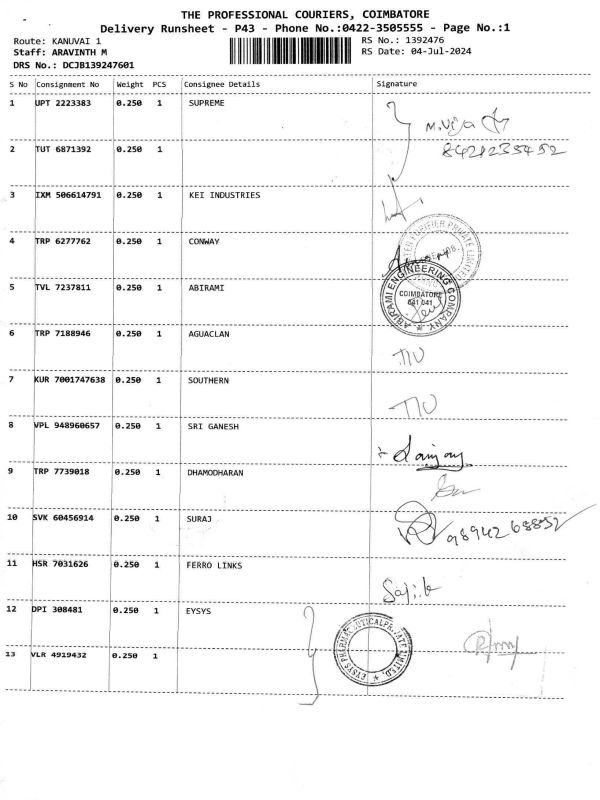 THE PROFESSIONAL COURIERS, COIMBATORE
Delivery Runsheet - P43 - Phone No.:0422-3505555 - Page No.:1
Route: KANUVAI 1
RS No.: 1392476
Staff: ARAVINTH M
RS Date: 04-Jul-2024
DRS No.: DCJB139247601
S No Consignment No Weight PCS Consignee Details Signature
1 UPT 2223383 0.250 1 SUPREME
M. Vija
2 TUT 6871392 0.250 1
3 IXM 506614791 0.250 1 KEI INDUSTRIES
4 TRP 6277762 0.250 1 CONWAY
PURIFIER PRIVATE LIMITED
5 TVL 7237811 0.250 1 ABIRAMI
ABIRAMI ENGINEERING COMPANY
COIMBATORE
641 041
6 TRP 7188946 0.250 1 AGUACLAN
7 KUR 7001747638 0.250 1 SOUTHERN
8 VPL 948960657 0.250 1 SRI GANESH
9 TRP 7739018 0.250 1 DHAMODHARAN
10 SVK 60456914 0.250 1 SURAJ
9894268852
11 HSR 7031626 0.250 1 FERRO LINKS
12 DPI 308481 0.250 1 EYSYS
EYSYS PHARMACEUTICAL PRIVATE LIMITED
13 VLR 4919432 0.250 1